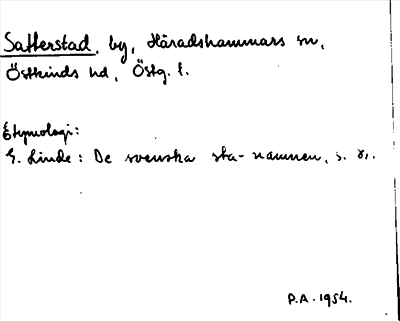 Satterstad, by, Häradshammars sn,
Östkinds hd, Östg. l.
Etymologi:
G. Linde: De svenska sta-namnen, s.
P.A. 1954.